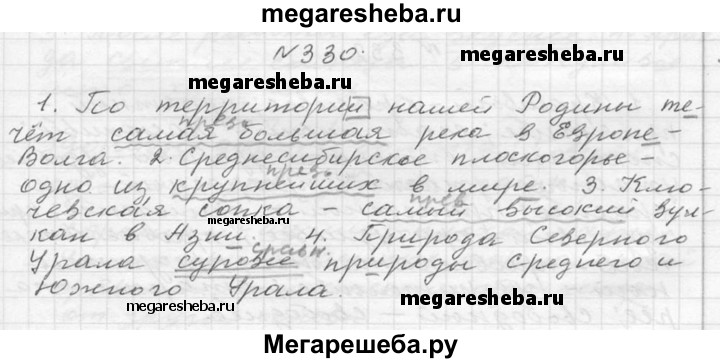 megaresheba.ru
№330.
1. По территории нашей Родины те-
чёт самая большая река в Европе -
прев.
Волга. 2. Среднесибирское плоскогорье -
прев.
одно из крупнейших в мире. 3. Клю-
прев.
чевская сопка - самый высокий вул-
megaresheba.ru
кан в Азии. 4. Природа Северного
сравн.
Урала суровее природы Среднего и
Южного Урала.
megaresheba.ru
megaresheba.ru
megaresheba.ru
Мегарешеба.ру